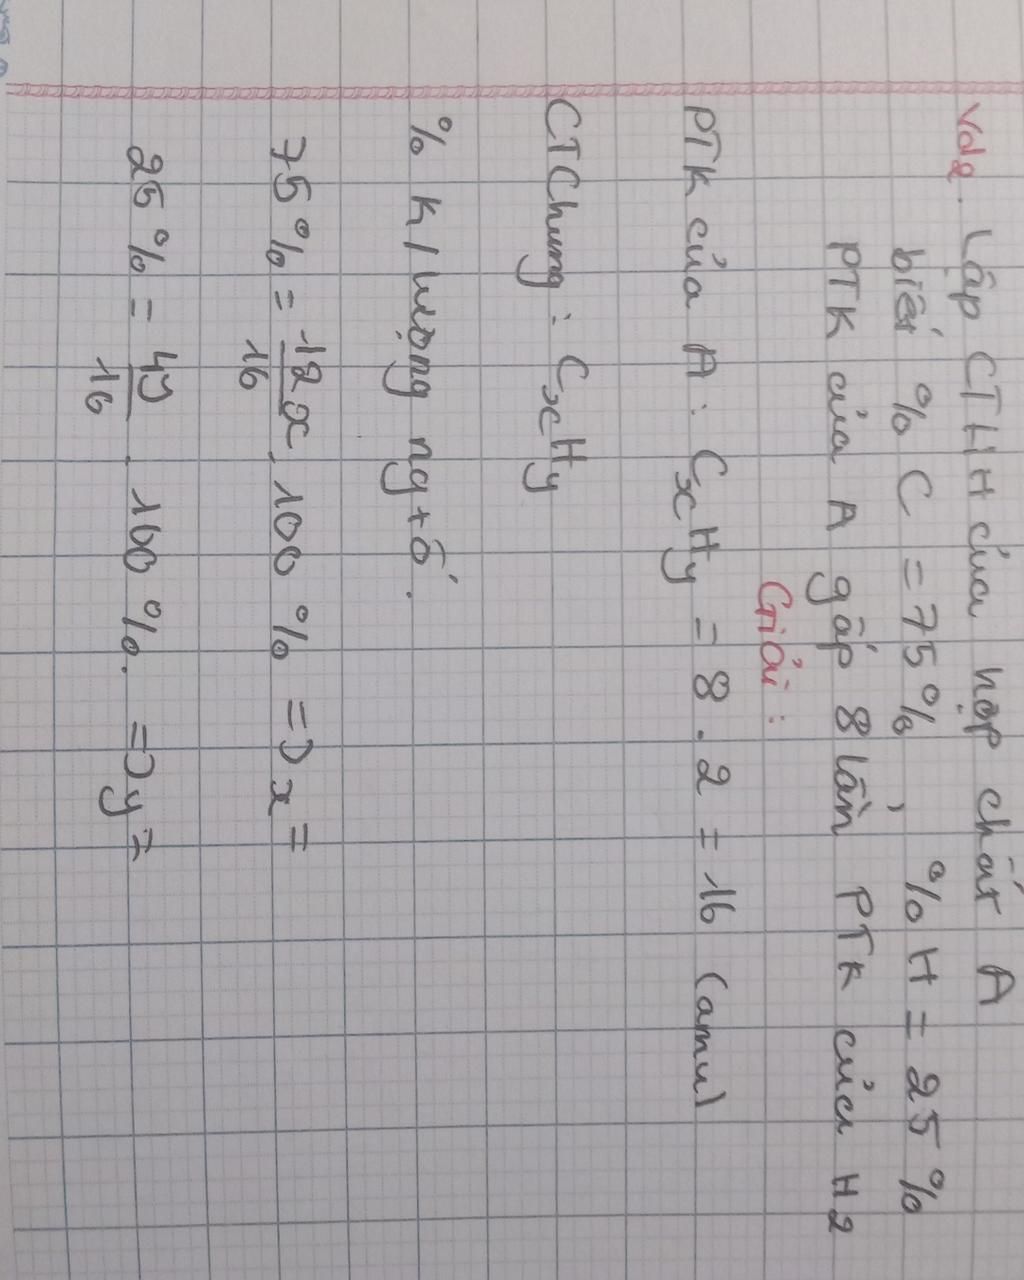 Vd2. Lập CTHH của hợp chất A
biết % C = 75%, % H = 25%
PTK của A gấp 8 lần PTK của H2
Giải:
PTK của A: CxHy = 8 . 2 = 16 (amu)
CTChung: CxHy
% K/lượng ng+ố.
75% = 12x/16 . 100% => x =
25% = 1y/16 . 100%. => y =